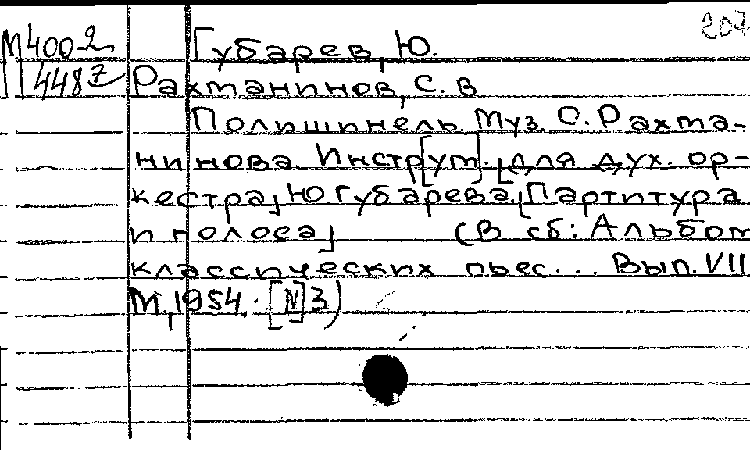 207
М4002 Губарев, Ю.
11448Z Рахтанинов, С. В
Полишинель. Муз. С. Рахта-
нинова. Инстр[ум]. [для дух. ор-
кестра] Ю Губарева. [Партитура
и голоса] (В сб: Альбом
классических пьес... Вып. VII
М, 1954. [N]3)